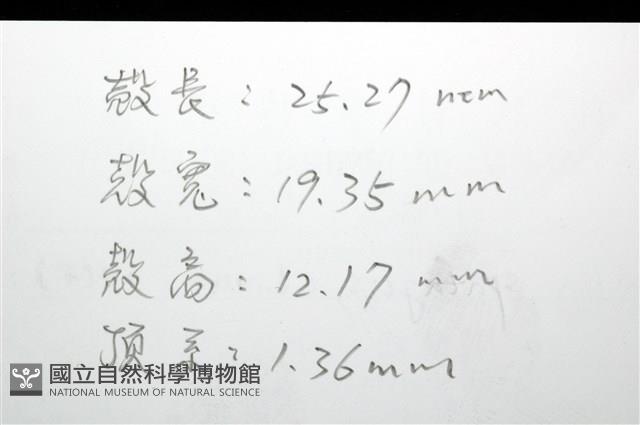 殼長：25.27 mm
殼寬：19.35 mm
殼高：12.17 mm
頂至：1.36 mm
國立自然科學博物館
NATIONAL MUSEUM OF NATURAL SCIENCE